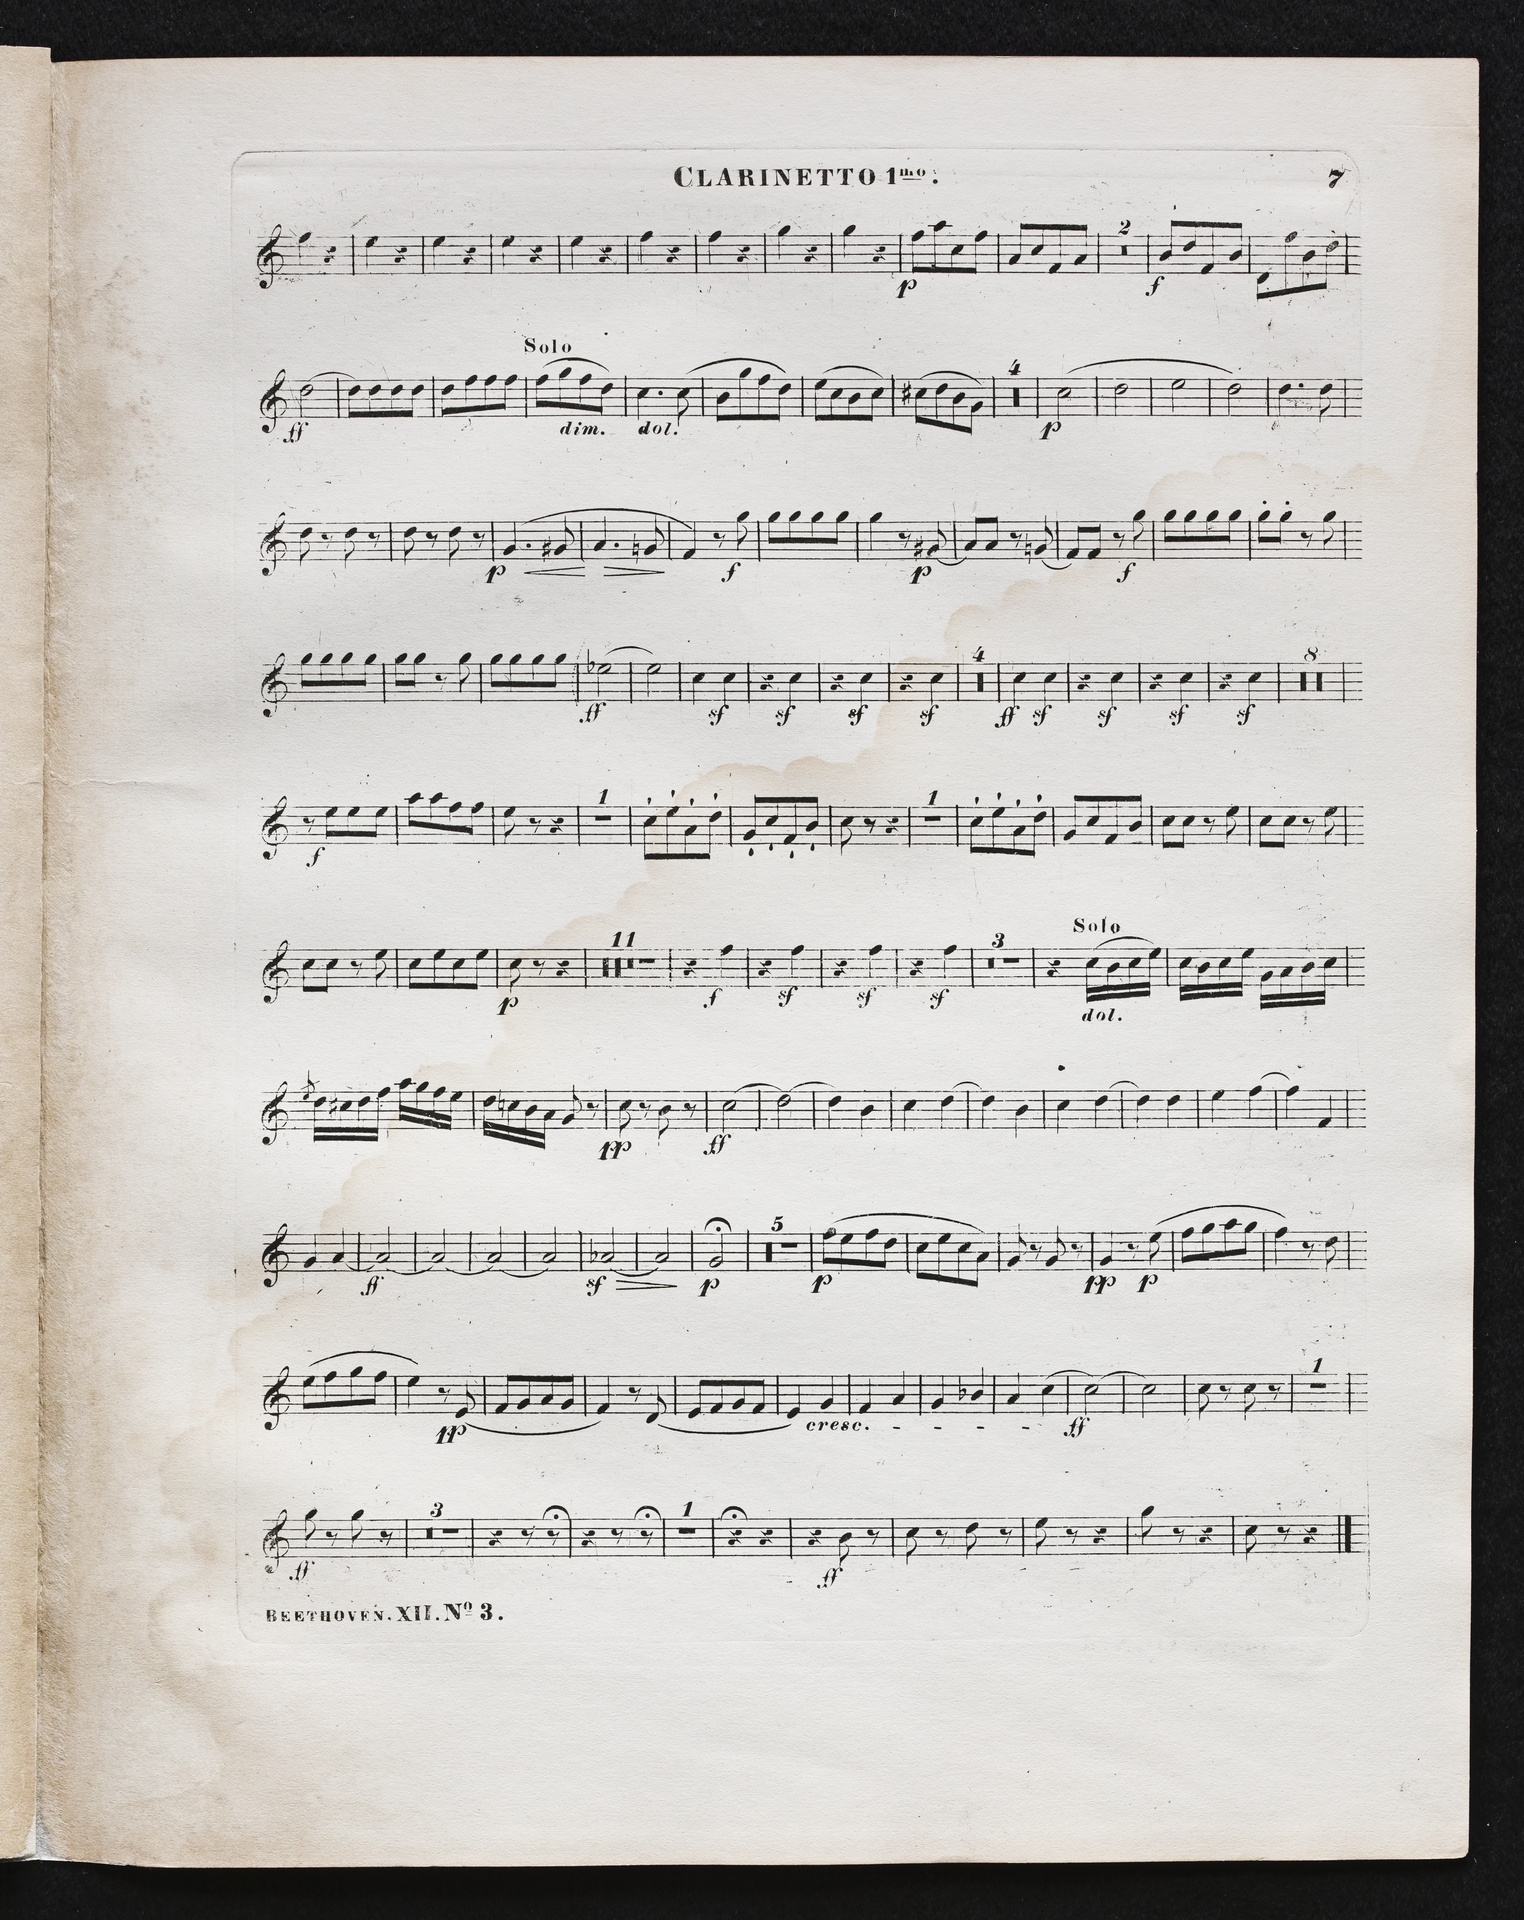 CLARINETTO 1mo. 7
2
p f
Solo
4
ff dim. dol. p
p f p f
4 8
ff sf sf sf sf ff sf sf sf sf
1 1
f
11 3 Solo
p f sf sf sf dol.
pp ff
5
ff sf p p pp p
1
pp cresc. - - - - ff
3 1
ff ff
BEETHOVEN. XII. No 3.